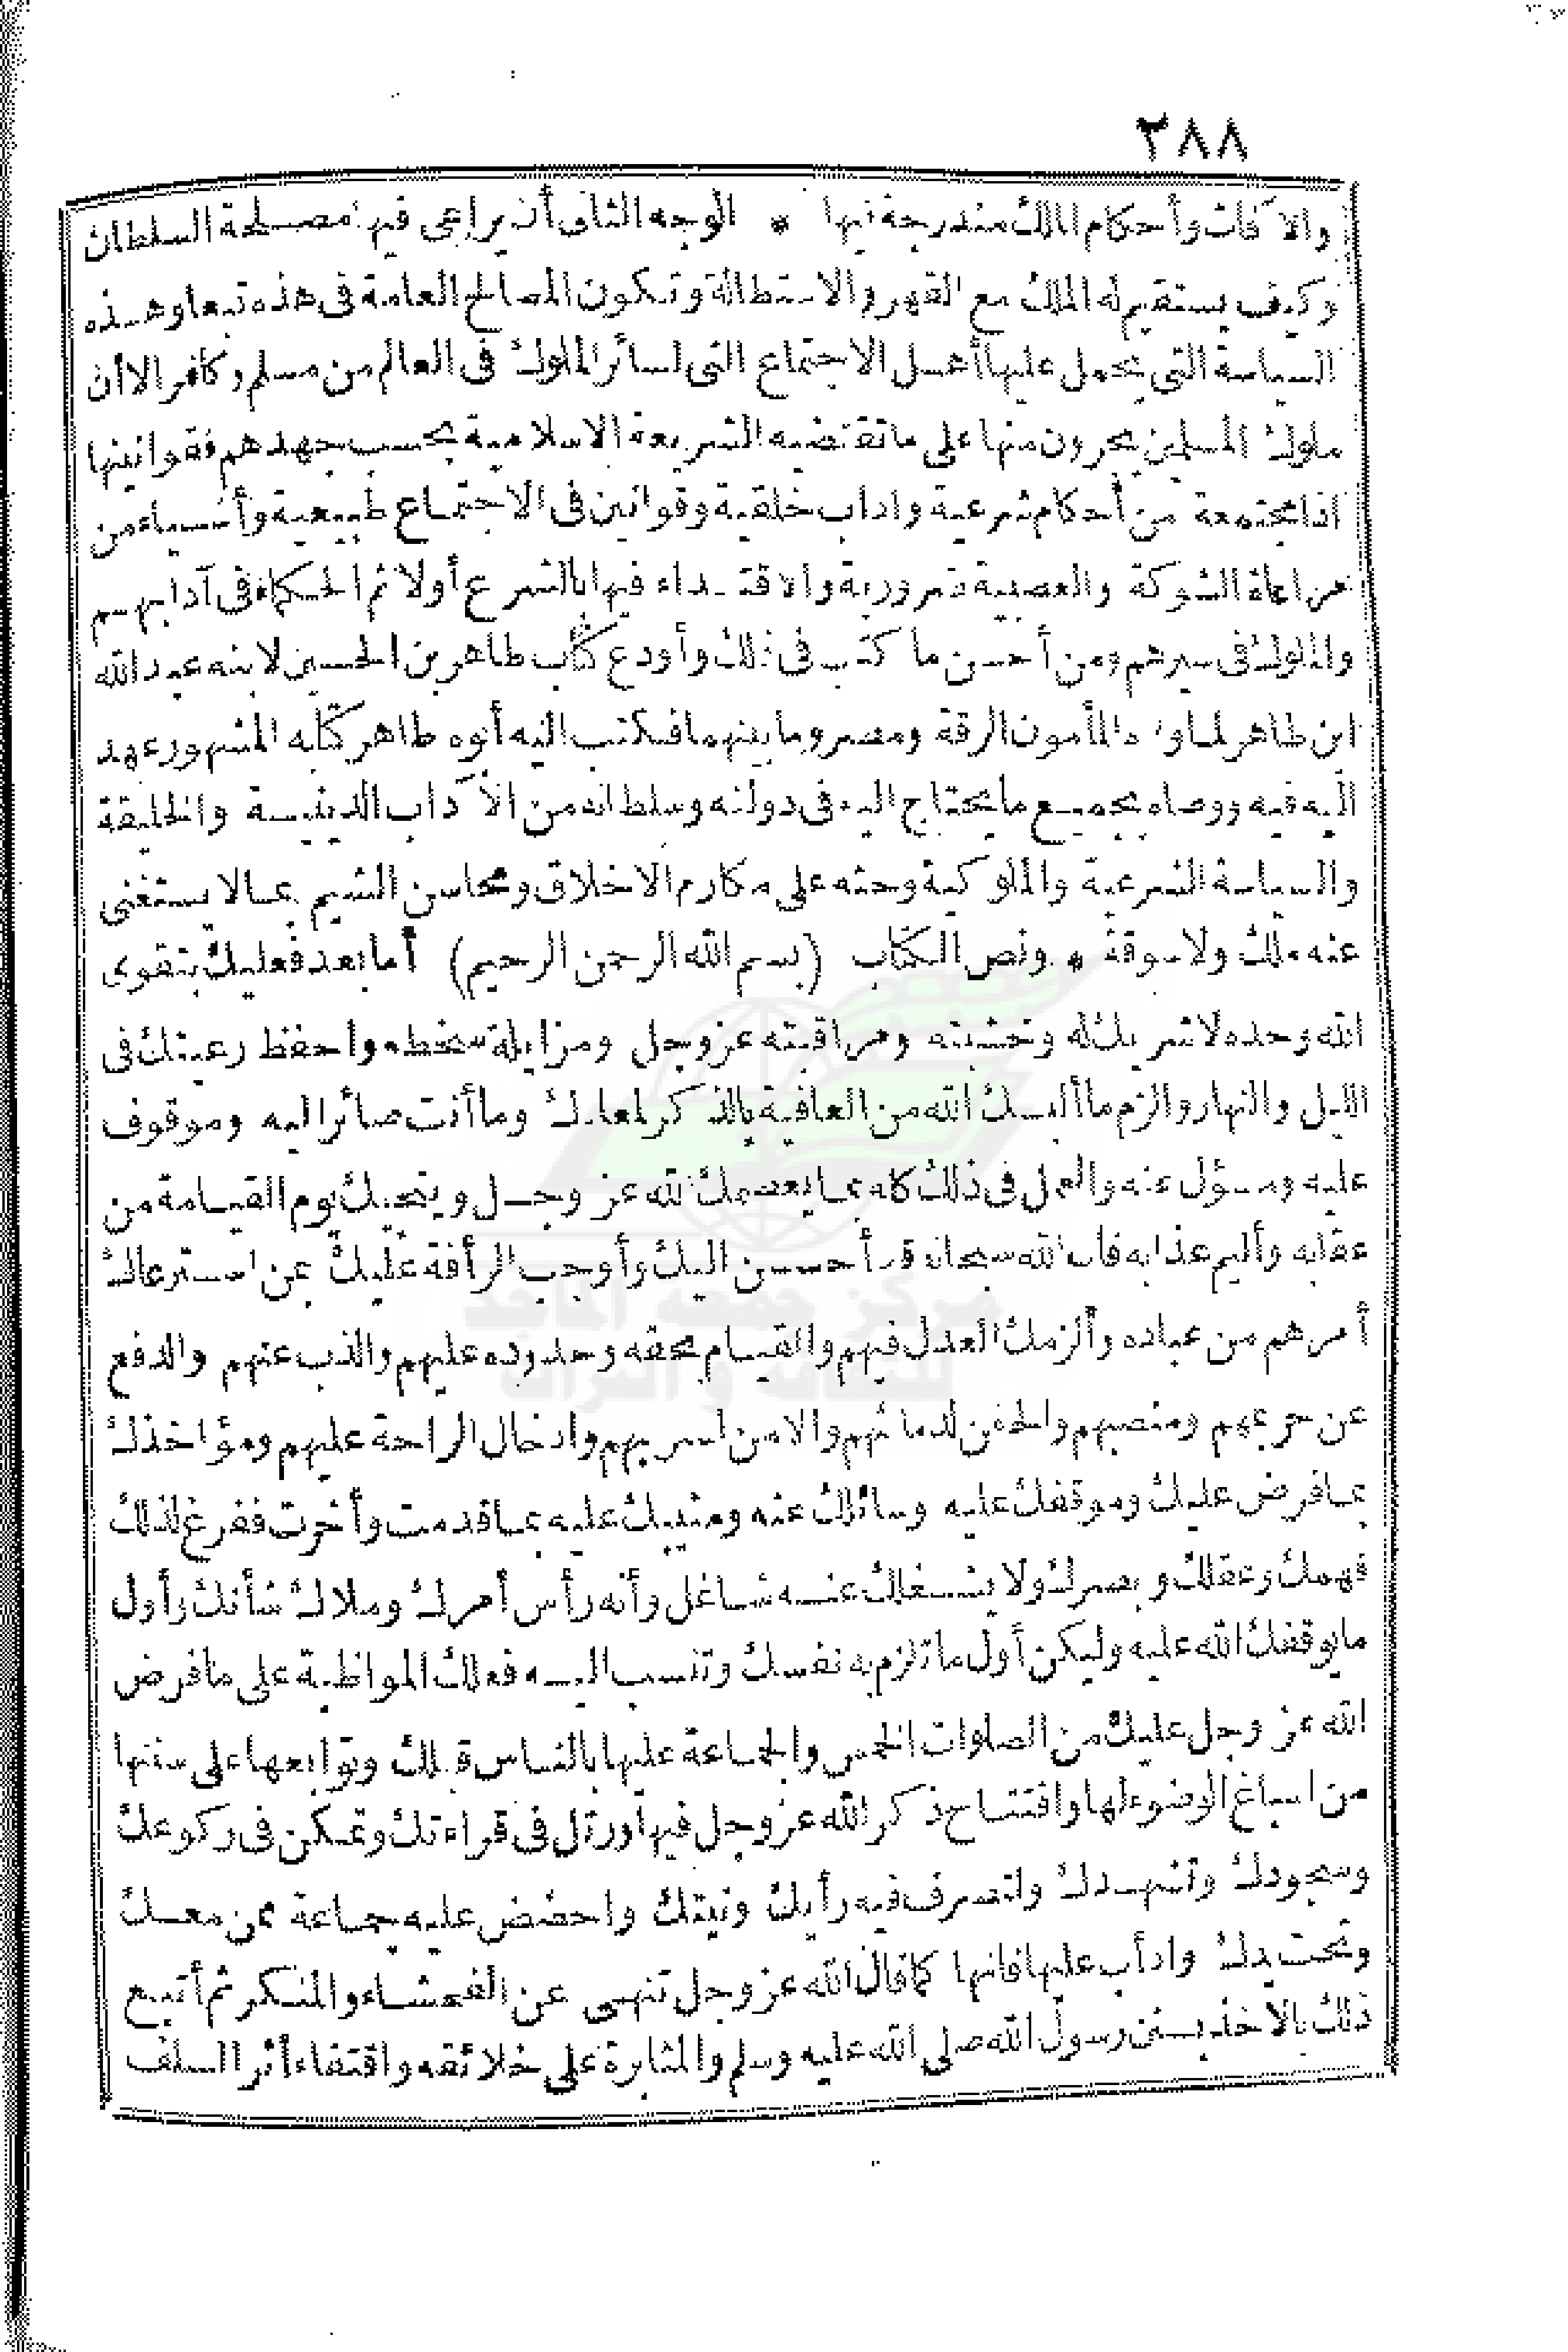 ٢٨٨
والآفات وأحكام الملك مندرجة فيها * الوجه الثانى أن يراعى فيها مصلحة السلطان
وكيف يستقيم له الملك مع القهر والاستطالة وتكون المصالح العامة فى هذه تبعا وهذه
السياسة التى يحمل عليها أهل الاجتماع التى لسائر الملوك فى العالم من مسلم وكافر الا أن
ملوك المسلمين يجرون منها على ما تقتضيه الشريعة الاسلامية بحسب جهدهم فقوانينها
اذا مجتمعة من أحكام شرعية واداب خلقية وقوانين فى الاجتماع طبيعية وأشياء من
مراعاة الشوكة والعصبية ضرورية والاقتداء فيها بالشرع أولا ثم الحكماء فى آدابهم
والملوك فى سيرهم ومن أحسن ما كتب فى ذلك وأودع كتاب طاهر بن الحسين لابنه عبد الله
ابن طاهر لما ولاه المأمون الرقة ومصر وما بينهما فكتب اليه أبوه طاهر كتابه المشهور عهد
اليه فيه ووصاه بجميع ما يحتاج اليه فى دولته وسلطانه من الآداب الدينية والخلقية
والسياسة الشرعية والملوكية وحثه على مكارم الاخلاق ومحاسن الشيم بمالا يستغنى
عنه ملك ولا سوقة * ونص الكتاب (بسم الله الرحمن الرحيم) أما بعد فعليك بتقوى
الله وحده لا شريك له وخشيته ومراقبته عز وجل ومزايلة سخطه واحفظ رعيتك فى
الليل والنهار والزم ما ألبسك الله من العافية بالذكر لمعادك وما أنت صائر اليه وموقوف
عليه ومسؤل عنه والعمل فى ذلك كله بما يعصمك الله عز وجل وينجيك يوم القيامة من
عقابه وأليم عذابه فان الله سبحانه قد أحسن اليك وأوجب الرأفة عليك عن استرعاك
أمرهم من عباده وألزمك العدل فيهم والقيام بحقه وحدوده عليهم والذب عنهم والدفع
عن حريمهم ومنصبهم والحقن لدمائهم والامن لسربهم وادخال الراحة عليهم ومؤاخذك
بما فرض عليك وموقفك عليه وسائلك عنه ومثيبك عليه بما قدمت وأخرت ففرغ لذلك
فهمك وعقلك وبصرك ولا يشغلك عنه شاغل وأنه رأس أمرك وملاك شأنك وأول
ما يوقفك الله عليه وليكن أول ما تلزم به نفسك وتنسب اليه فعلك المواظبة على ما فرض
الله عز وجل عليك من الصلوات الخمس والجماعة عليها بالناس قبلك وتوابعها على سننها
من اسباغ الوضوء لها وافتتاح ذكر الله عز وجل فيها ورتل فى قراءتك وتمكن فى ركوعك
وسجودك وتشهدك ولتصرف فيه رأيك ونيتك واحضض عليه جماعة ممن معك
وتحت يدك وادأب عليها فانها كما قال الله عز وجل تنهى عن الفحشاء والمنكر ثم أتبع
ذلك بالاخذ بسنن رسول الله صلى الله عليه وسلم والمثابرة على خلائقه واقتفاء أثر السلف
مركز جمعه الماجد
للثقافة و التراث